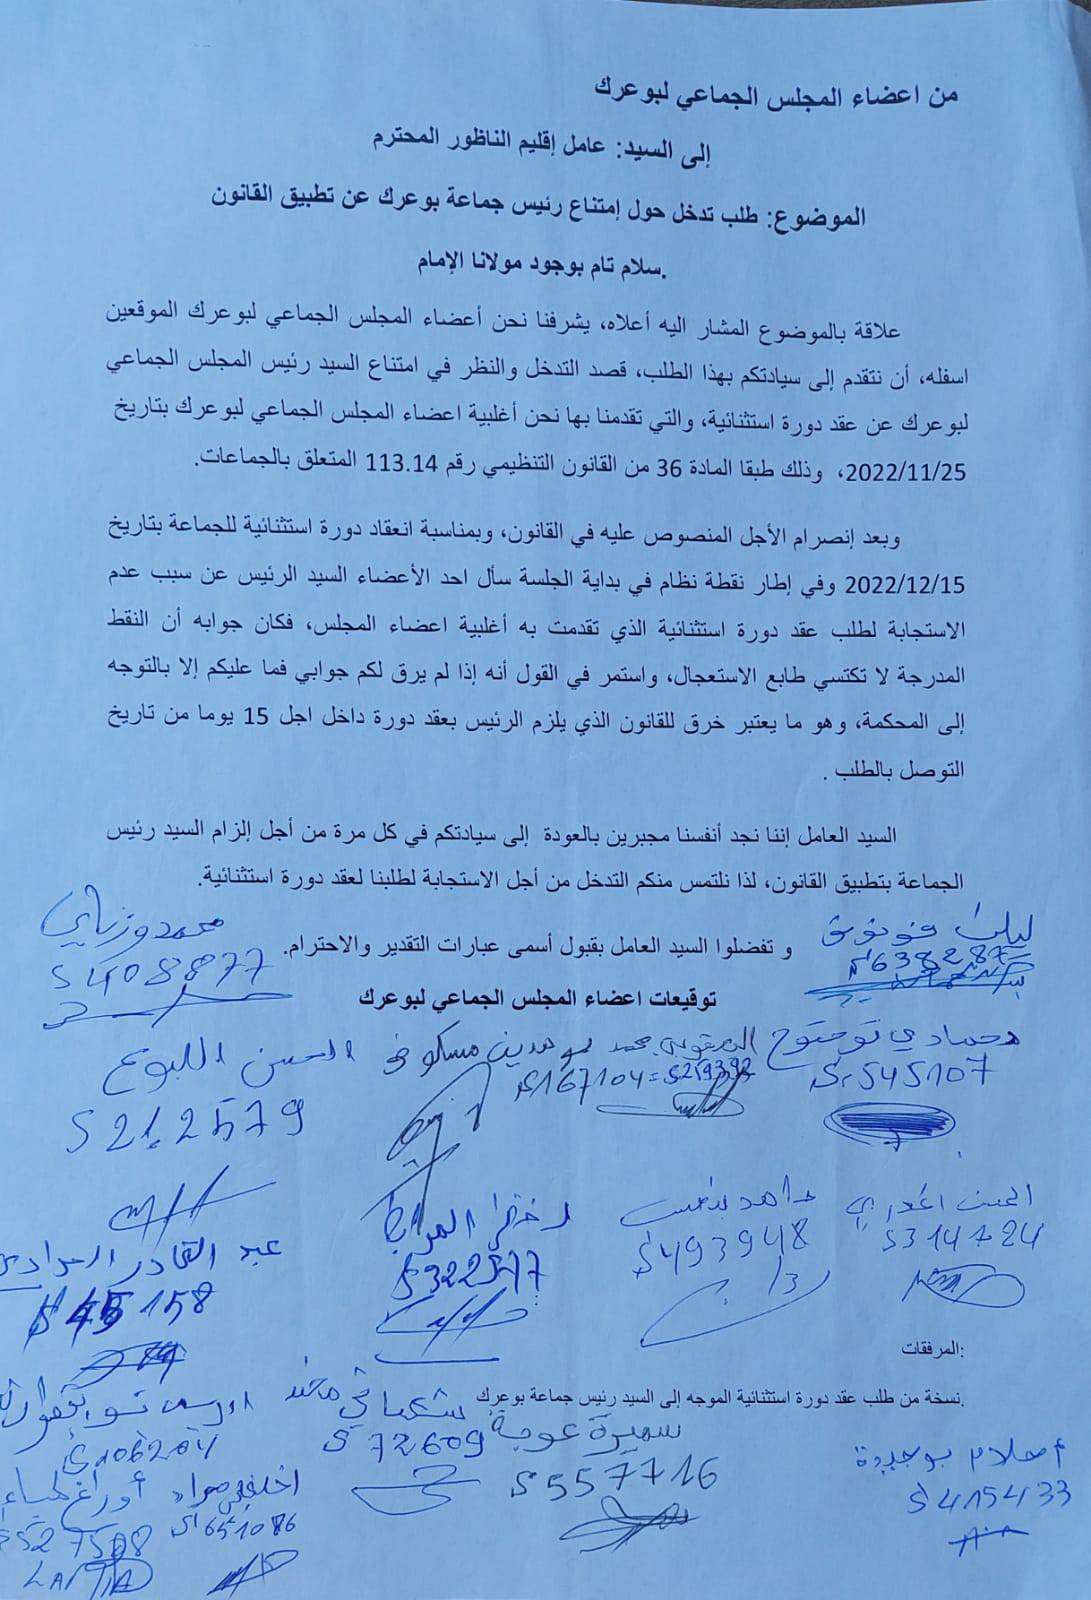 من اعضاء المجلس الجماعي لبوعرك
إلى السيد: عامل إقليم الناظور المحترم
الموضوع: طلب تدخل حول إمتناع رئيس جماعة بوعرك عن تطبيق القانون
.سلام تام بوجود مولانا الإمام
علاقة بالموضوع المشار اليه أعلاه، يشرفنا نحن أعضاء المجلس الجماعي لبوعرك الموقعين
اسفله، أن نتقدم إلى سيادتكم بهذا الطلب، قصد التدخل والنظر في امتناع السيد رئيس المجلس الجماعي
لبوعرك عن عقد دورة استثنائية، والتي تقدمنا بها نحن أغلبية اعضاء المجلس الجماعي لبوعرك بتاريخ
2022/11/25، وذلك طبقا المادة 36 من القانون التنظيمي رقم 113.14 المتعلق بالجماعات.
وبعد إنصرام الأجل المنصوص عليه في القانون، وبمناسبة انعقاد دورة استثنائية للجماعة بتاريخ
2022/12/15 وفي إطار نقطة نظام في بداية الجلسة سأل احد الأعضاء السيد الرئيس عن سبب عدم
الاستجابة لطلب عقد دورة استثنائية الذي تقدمت به أغلبية اعضاء المجلس، فكان جوابه أن النقط
المدرجة لا تكتسي طابع الاستعجال، واستمر في القول أنه إذا لم يرق لكم جوابي فما عليكم إلا بالتوجه
إلى المحكمة، وهو ما يعتبر خرق للقانون الذي يلزم الرئيس بعقد دورة داخل اجل 15 يوما من تاريخ
التوصل بالطلب .
السيد العامل إننا نجد أنفسنا مجبرين بالعودة إلى سيادتكم في كل مرة من أجل إلزام السيد رئيس
الجماعة بتطبيق القانون، لذا نلتمس منكم التدخل من أجل الاستجابة لطلبنا لعقد دورة استثنائية.
و تفضلوا السيد العامل بقبول أسمى عبارات التقدير والاحترام.
محمد
S408877
S638287
توقيعات اعضاء المجلس الجماعي لبوعرك
محمد بومدين مسكوفي
S545107
S167104 = S259392
الحسن اللبوع
S212579
حامد
S493948
S322577
عبد القادر
S314724
158
:المرفقات
.نسخة من طلب عقد دورة استثنائية الموجه إلى السيد رئيس جماعة بوعرك
S106204
S72609
سميرة عوجة
S557716
أحلام بوجديدة
S415433
مراد
S651086